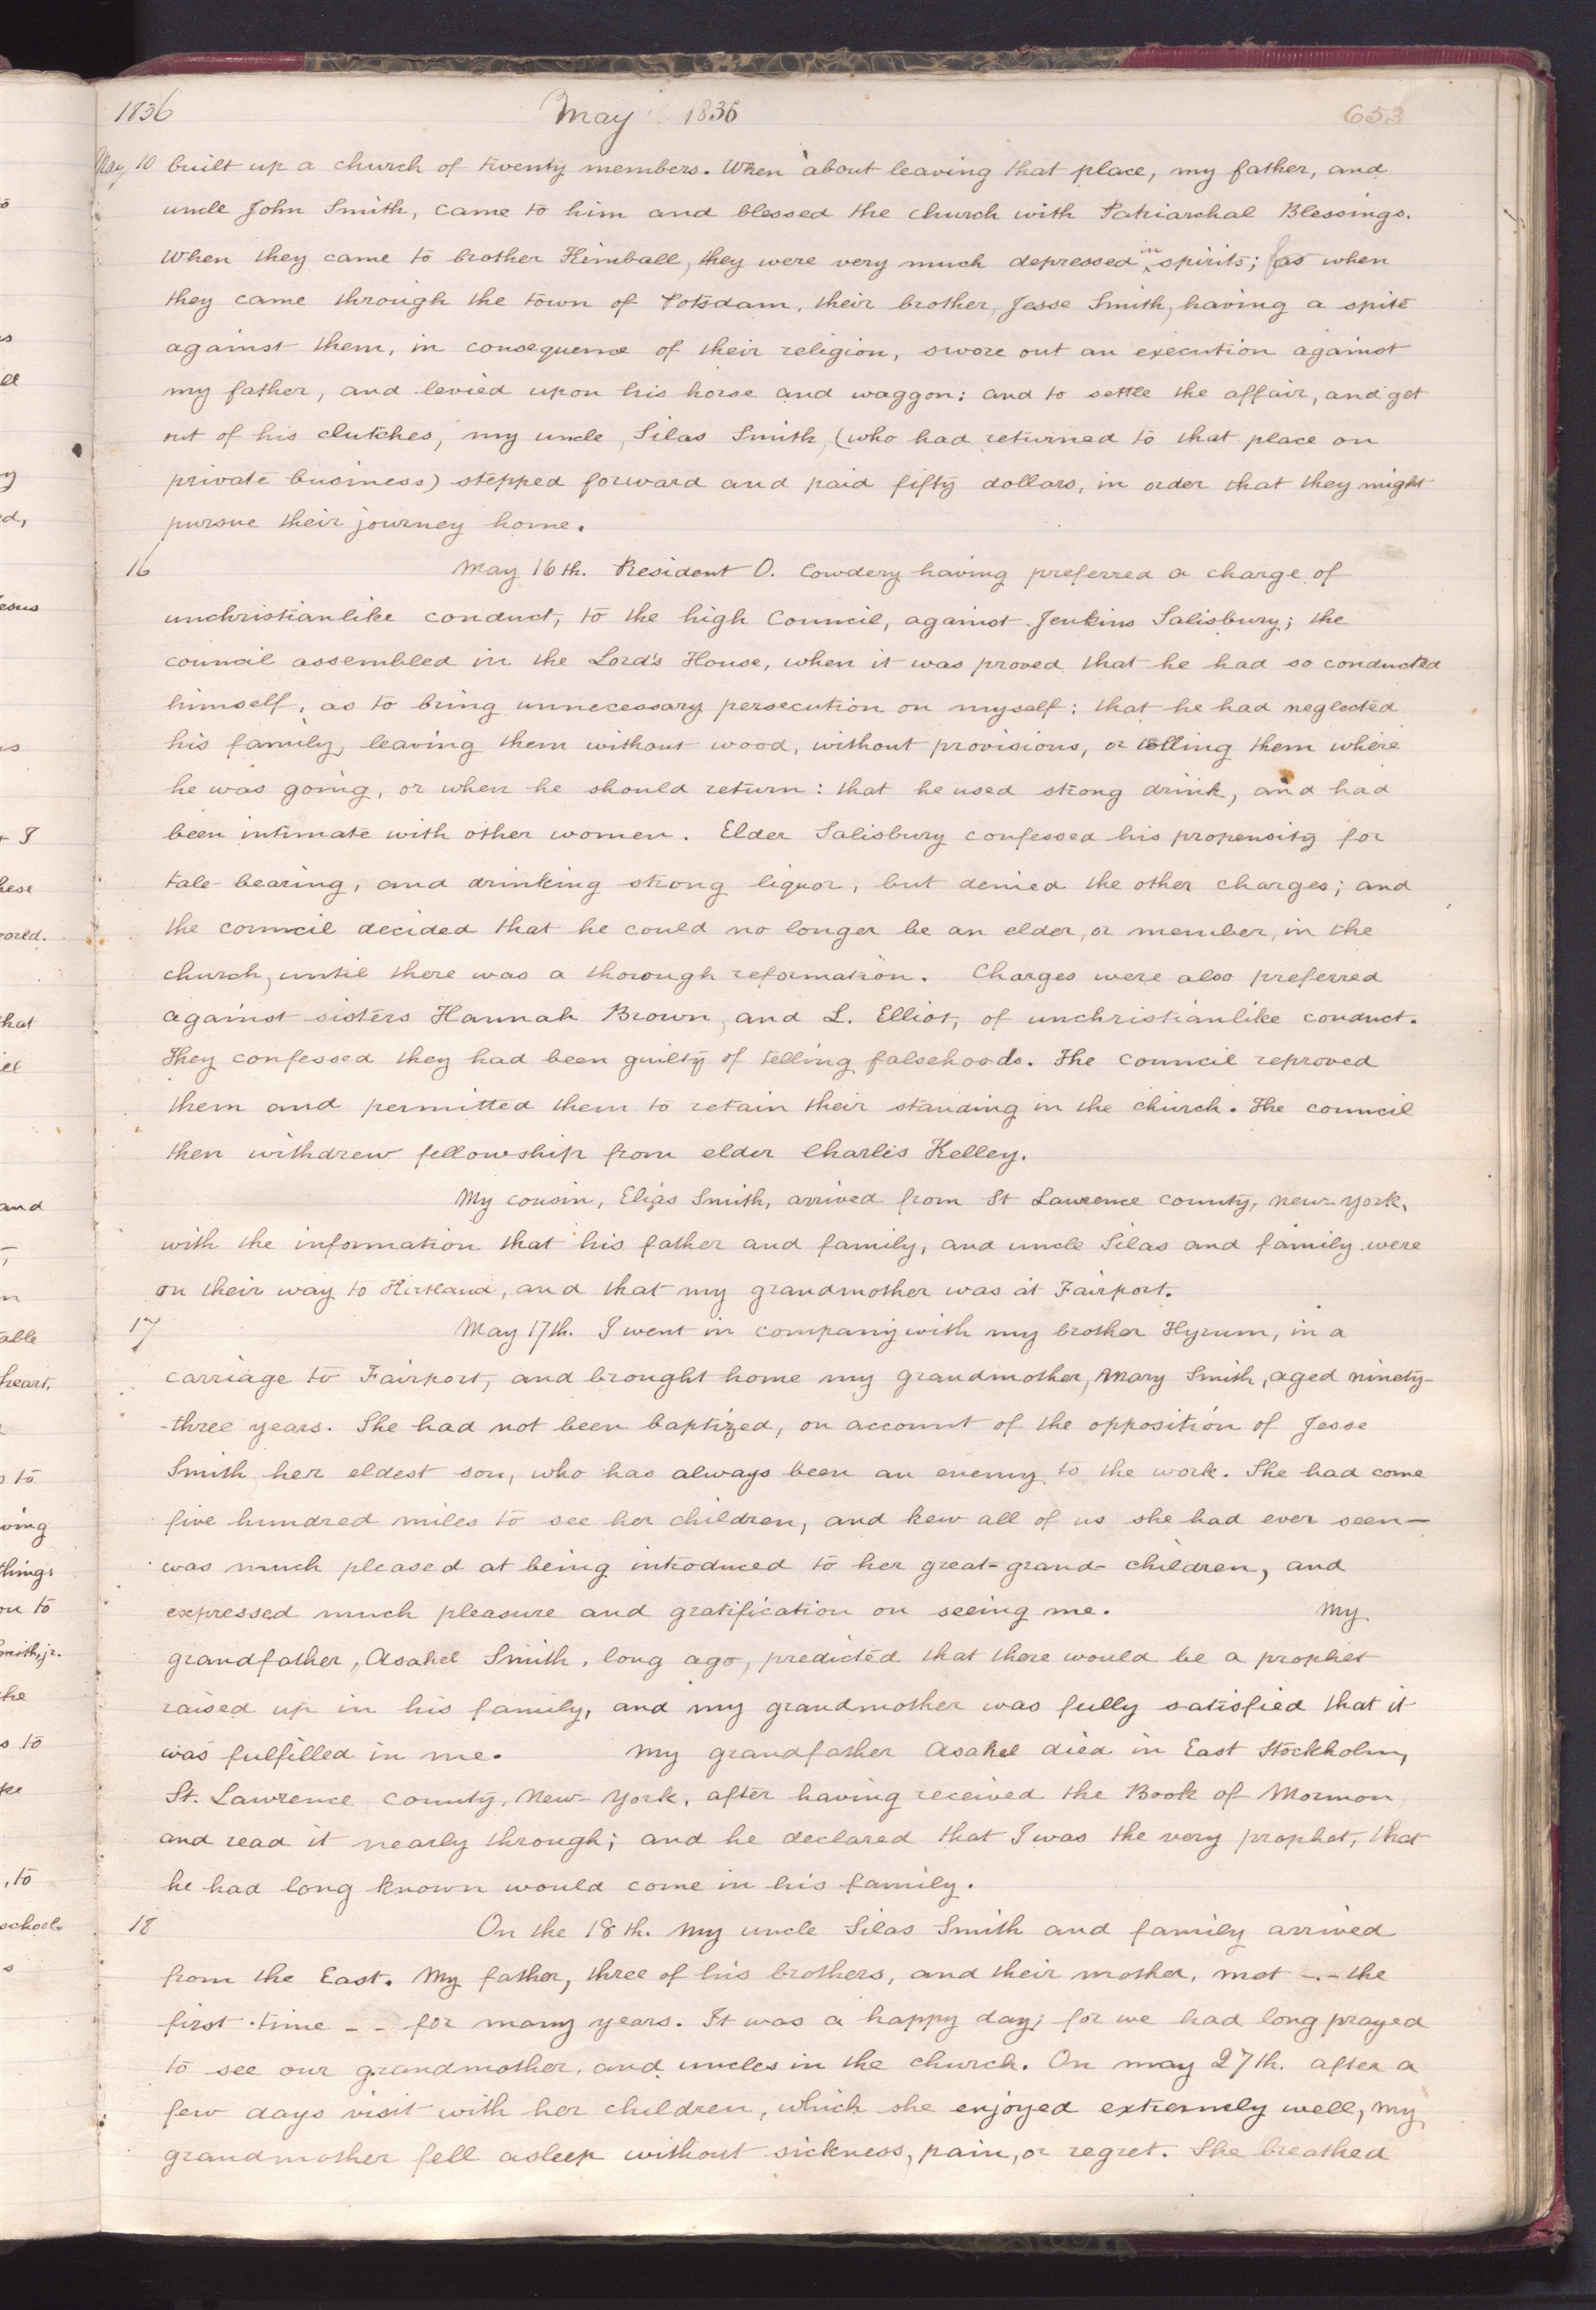 1836 May 1836 653
May 10 built up a church of twenty members. When about leaving that place, my father, and
uncle John Smith, came to him and blessed the church with Patriarchal Blessings.
When they came to brother Kimball, they were very much depressed in spirits; (as when
they came through the town of Potsdam, their brother, Jesse Smith, having a spite
against them, in consequence of their religion, swore out an execution against
my father, and levied upon his horse and waggon: and to settle the affair, and get
out of his clutches, my uncle, Silas Smith, (who had returned to that place on
private business) stepped forward and paid fifty dollars, in order that they might
pursue their journey home.
16 May 16th. President O. Cowdery having preferred a charge of
unchristianlike conduct, to the high Council, against Jenkins Salisbury; the
council assembled in the Lord's House, when it was proved that he had so conducted
himself, as to bring unnecessary persecution on myself: that he had neglected
his family, leaving them without wood, without provisions, or telling them where
he was going, or when he should return: that he used strong drink, and had
been intimate with other women. Elder Salisbury confessed his propensity for
tale-bearing, and drinking strong liquor, but denied the other charges; and
the council decided that he could no longer be an elder, or member, in the
church, until there was a thorough reformation. Charges were also preferred
against sisters Hannah Brown, and L. Elliot, of unchristianlike conduct.
They confessed they had been guilty of telling falsehoods. The council reproved
them and permitted them to retain their standing in the church. The council
then withdrew fellowship from elder Charlis Kelley.
My cousin, Elias Smith, arrived from St Lawrence county, New-York,
with the information that his father and family, and uncle Silas and family were
on their way to Kirtland, and that my grandmother was at Fairport.
17 May 17th. I went in company with my brother Hyrum, in a
carriage to Fairport, and brought home my grandmother, Mary Smith, aged ninety-
-three years. She had not been baptized, on account of the opposition of Jesse
Smith her eldest son, who has always been an enemy to the work. She had come
five hundred miles to see her children, and kew all of us she had ever seen—
was much pleased at being introduced to her great-grand-children, and
expressed much pleasure and gratification on seeing me. My
grandfather, Asahel Smith, long ago, predicted that there would be a prophet
raised up in his family, and my grandmother was fully satisfied that it
was fulfilled in me. My grandfather Asahel died in East Stockholm,
St. Lawrence County, New-York, after having received the Book of Mormon,
and read it nearly through; and he declared that I was the very prophet, that
he had long known would come in his family.
18 On the 18th. My uncle Silas Smith and family arrived
from the East. My father, three of his brothers, and their mother, met -.- the
first time - - for many years. It was a happy day; for we had long prayed
to see our grandmother, and uncles in the church. On may 27th. after a
few days visit with her children, which she enjoyed extremely well, my
grandmother fell asleep without sickness, pain, or regret. She breathed